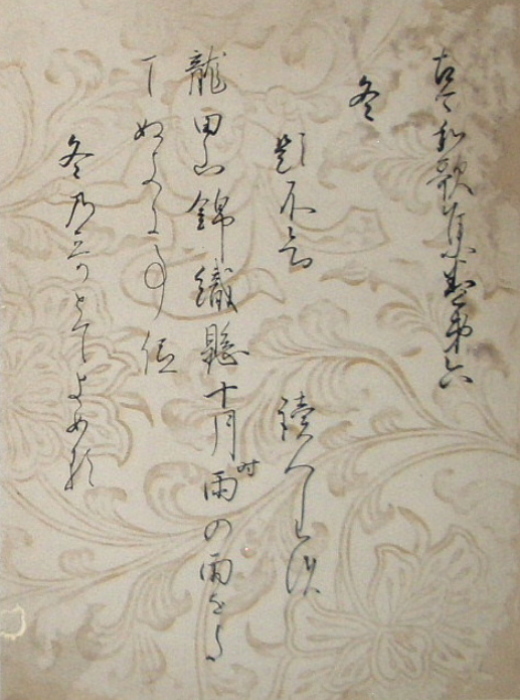 古今和歌集巻第六
冬
題不知 読人しらす
龍田山錦織懸十月時雨の雨をた
てぬきに
冬乃哥とてよめる